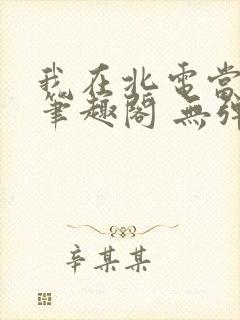 我在北電當
筆趣閣 無彈
辛某某